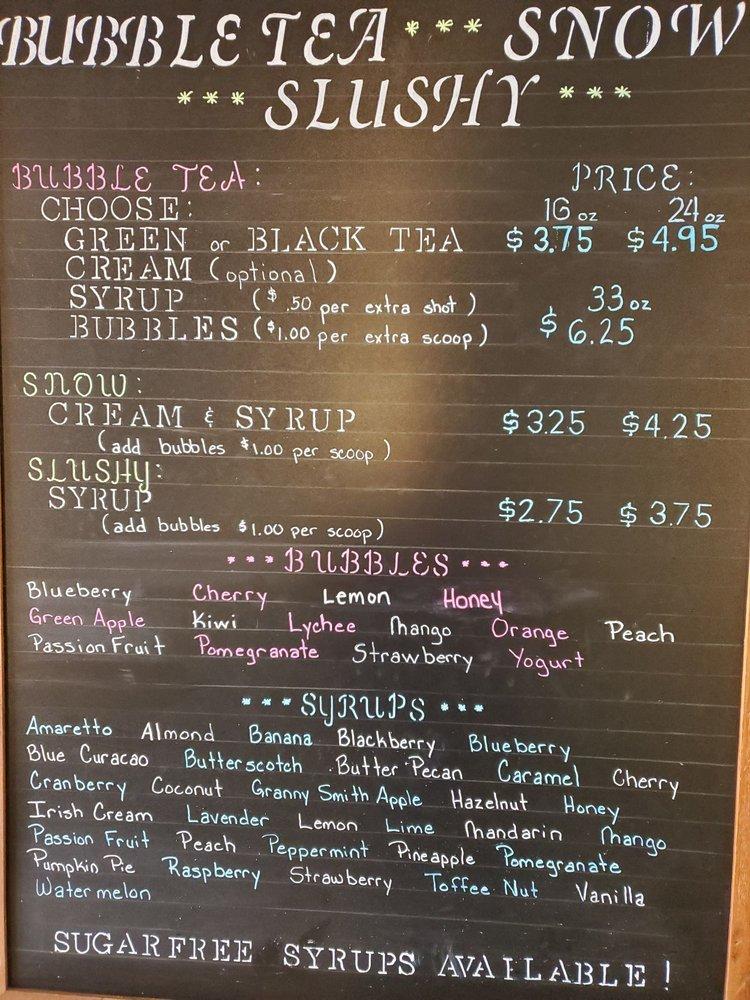 BUBBLE TEA *** SNOW
*** SLUSHY ***
BUBBLE TEA: PRICE:
CHOOSE: 16 oz 24 oz
GREEN or BLACK TEA $3.75 $4.95
CREAM (optional)
SYRUP ($.50 per extra shot) 33 oz
BUBBLES ($1.00 per extra scoop) $6.25
SNOW:
CREAM & SYRUP $3.25 $4.25
(add bubbles $1.00 per scoop)
SLUSHY:
SYRUP $2.75 $3.75
(add bubbles $1.00 per scoop)
*** BUBBLES ***
Blueberry Cherry Lemon Honey
Green Apple Kiwi Lychee Mango Orange Peach
Passion Fruit Pomegranate Strawberry Yogurt
*** SYRUPS ***
Amaretto Almond Banana Blackberry Blueberry
Blue Curacao Butterscotch Butter Pecan Caramel Cherry
Cranberry Coconut Granny Smith Apple Hazelnut Honey
Irish Cream Lavender Lemon Lime Mandarin Mango
Passion Fruit Peach Peppermint Pineapple Pomegranate
Pumpkin Pie Raspberry Strawberry Toffee Nut Vanilla
Watermelon
SUGAR FREE SYRUPS AVAILABLE!